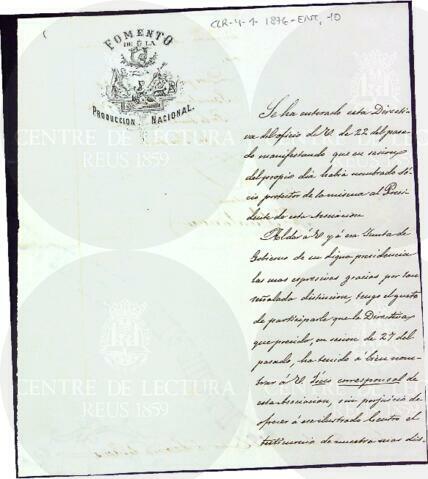 CLR-4-1 1876-ENT, 10
FOMENTO
DE LA
PRODUCCION NACIONAL.
Se ha enterado esta Directi-
va del oficio de V. de 22 del pasa-
do manifestando que en sesion
del propio dia había nombrado Só-
cio protector de la misma al Presi-
dente de esta Asociacion.
Al dar á V. y á esa Junta de
Gobierno de su digna presidencia
las mas espresivas gracias por tan
señalada distincion, tengo el gusto
de participarle que la Directiva
que presido, en sesion de 27 del
pasado, ha tenido á bien nom-
brar á V. Sócio corresponsal de
esta Asociacion, sin perjuicio de
ofrecer á ese ilustrado Centro el
testimonio de nuestra mas dis-
CENTRE DE LECTURA
REUS 1859
CENTRE DE LECTURA
REUS 1859